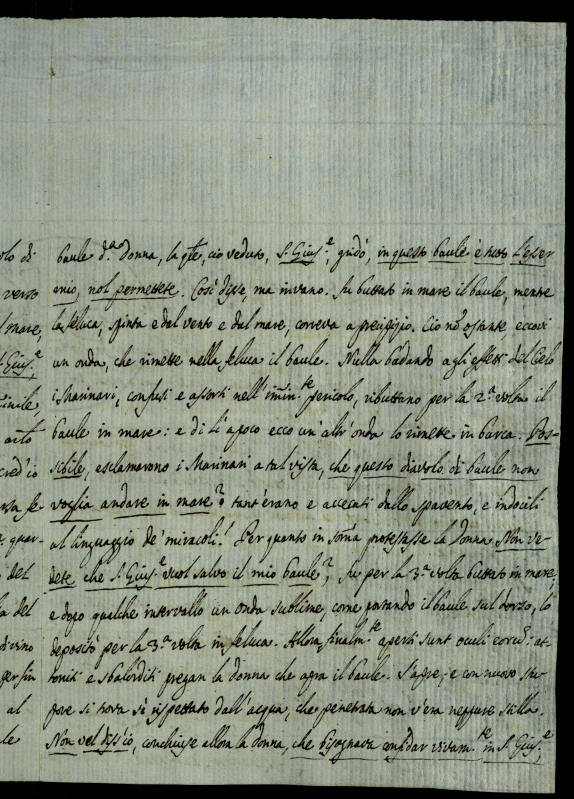 baule d.ª Donna, la qle, ciò veduto, S. Gius.e, gridò, in questo baule è tutto l'esser
mio, nol permettete. Così disse, ma invano. Fu buttato in mare il baule, mentre
la feluca, spinta e dal vento e dal mare, correva a precipizio. Ciò nō ostante, eccovi
un onda, che rimette nella feluca il baule. Nulla badando agli effetti del Cielo
i Marinari, confusi e assorti nell'imin.te pericolo, ributtano per la 2.ª volta il
baule in mare: e di lì a poco ecco un'altr'onda lo rimette in barca. Pos-
sibile, esclamarono i Marinari a tal vista, che questo diavolo di baule non
voglia andare in mare? tant'erano e accecati dallo spavento, e indocili
al linguaggio de' miracoli! Per quanto in soma protestasse la Donna Non ve-
dete che S. Gius.e vuol salvo il mio baule?, fu per la 3.ª volta buttato in mare;
e dopo qualche intervallo un onda sublime, come portando il baule sul dorso, lo
depositò per la 3.ª volta in feluca. Allora finalm.te aperti sunt oculi eorum: at-
toniti e sbalorditi pregan la donna che apra il baule. S'apre; e con nuovo stu-
pore si trova sì rispettato dall'acqua, che penetrata non v'era neppure stilla.
Non vel diss'io, conchiuse allora la donna, che bisognava confidar vivam.te in S. Gius.e,
olo di
verso
l mare,
S. Gius.e
arto
quar-
del
la del
divino
per fin
al